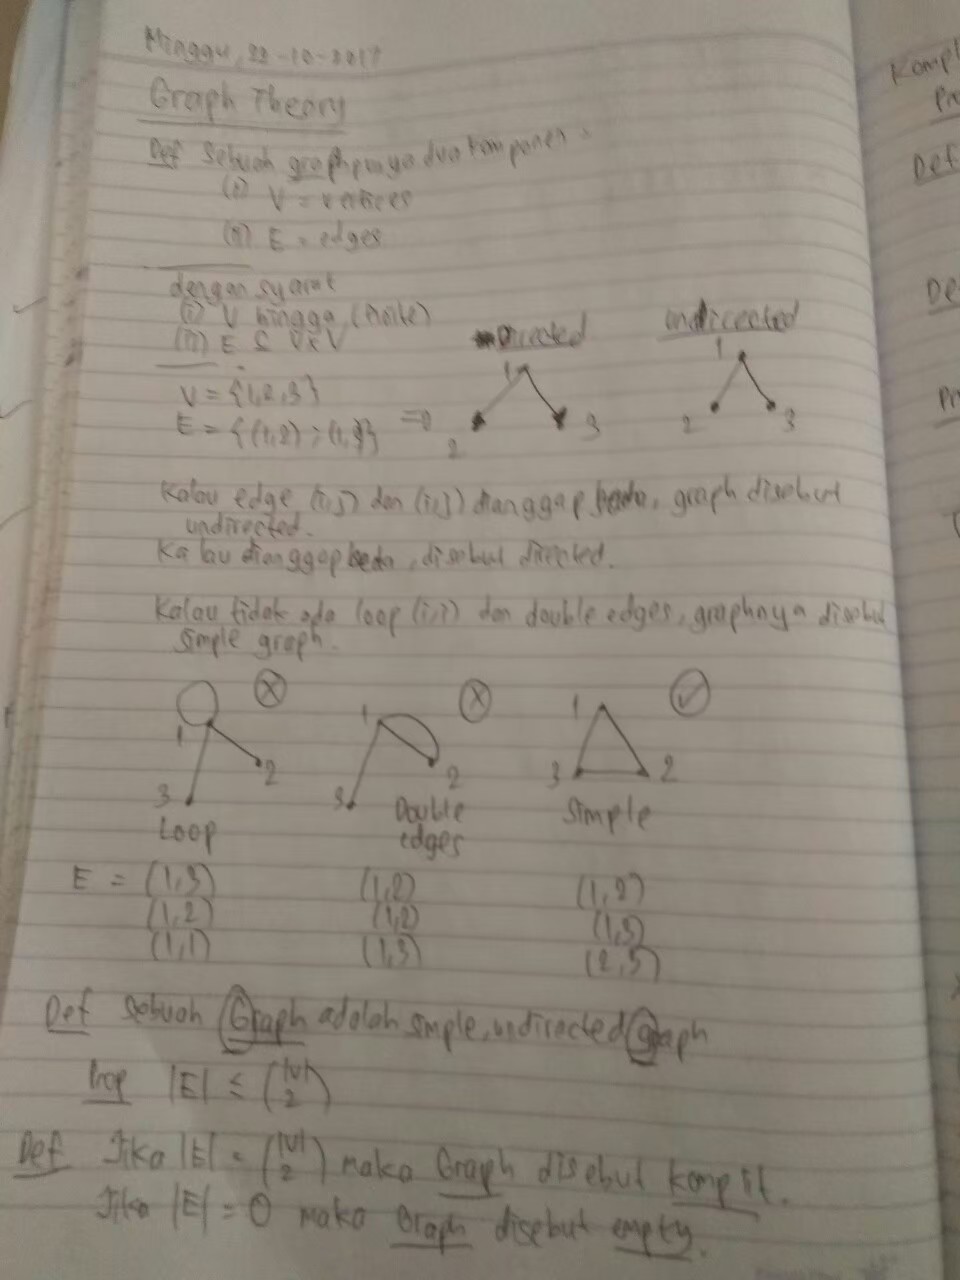 Minggu, 22-10-2017
Graph Theory
Def Sebuah graph punya dua komponen:
(i) V = vertices
(ii) E = edges
dengan syarat
(i) V hingga (finite)
(ii) E ⊆ V×V
V = {1,2,3}
E = {(1,2); (1,3)}
Directed
1
2 3
undirected
1
2 3
Kalau edge (i,j) dan (i,j) dianggap, graph disebut
undirected.
Kalau dianggap beda, disebut directed.
Kalau tidak ada loop (i,i) dan double edges, graphnya disebut
simple graph.
1
2
3
Loop
1
2
3
Double
edges
1
3 2
Simple
E = (1,3) (1,2) (1,2)
(1,2) (1,2) (1,3)
(1,1) (1,3) (2,3)
Def Sebuah Graph adalah simple, undirected graph
Prop |E| ≤ (|V| 2)
Def Jika |E| = (|V| 2) maka Graph disebut komplit.
Jika |E| = 0 maka Graph disebut empty.
Kompl
Def